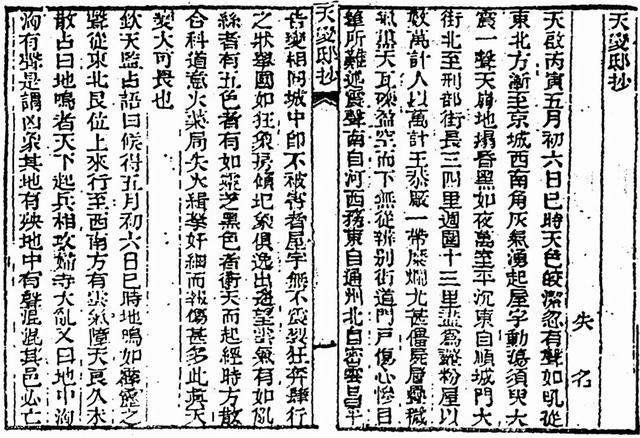 天變邸抄
失名
天啟丙寅五月初六日巳時天色皎潔忽有聲如吼從
東北方漸至京城西南角灰氣湧起屋宇動蕩須臾大
震一聲天崩地塌昏黑如夜萬室平沉東自順城門大
街北至刑部街長三四里週圍十三里盡為齏粉屋以
數萬計人以萬計王恭厰一帶糜爛尤甚僵屍層疊穢
氣熏天瓦礫盈空而下無從辨別街道門戶傷心慘目
筆所難述震聲南自河西務東自通州北自密雲昌平
天變邸抄
告變相同城中即不被害者屋宇無不震裂狂奔肆行
之狀舉國如狂象房傾圮象俱逸出遙望雲氣有如亂
絲者有五色者有如靈芝黑色者衝天而起經時方散
合科道意火藥局失火緝拏奸細而報傷甚多此真天
變大可畏也
欽天監占語曰候得五月初六日巳時地鳴如霹靂之
聲從東北艮位上來行至西南方有雲氣障天良久未
散占曰地鳴者天下起兵相攻婦寺大亂又曰地中洶
洶有聲是謂凶象其地有殃地中有聲混混其邑必亡